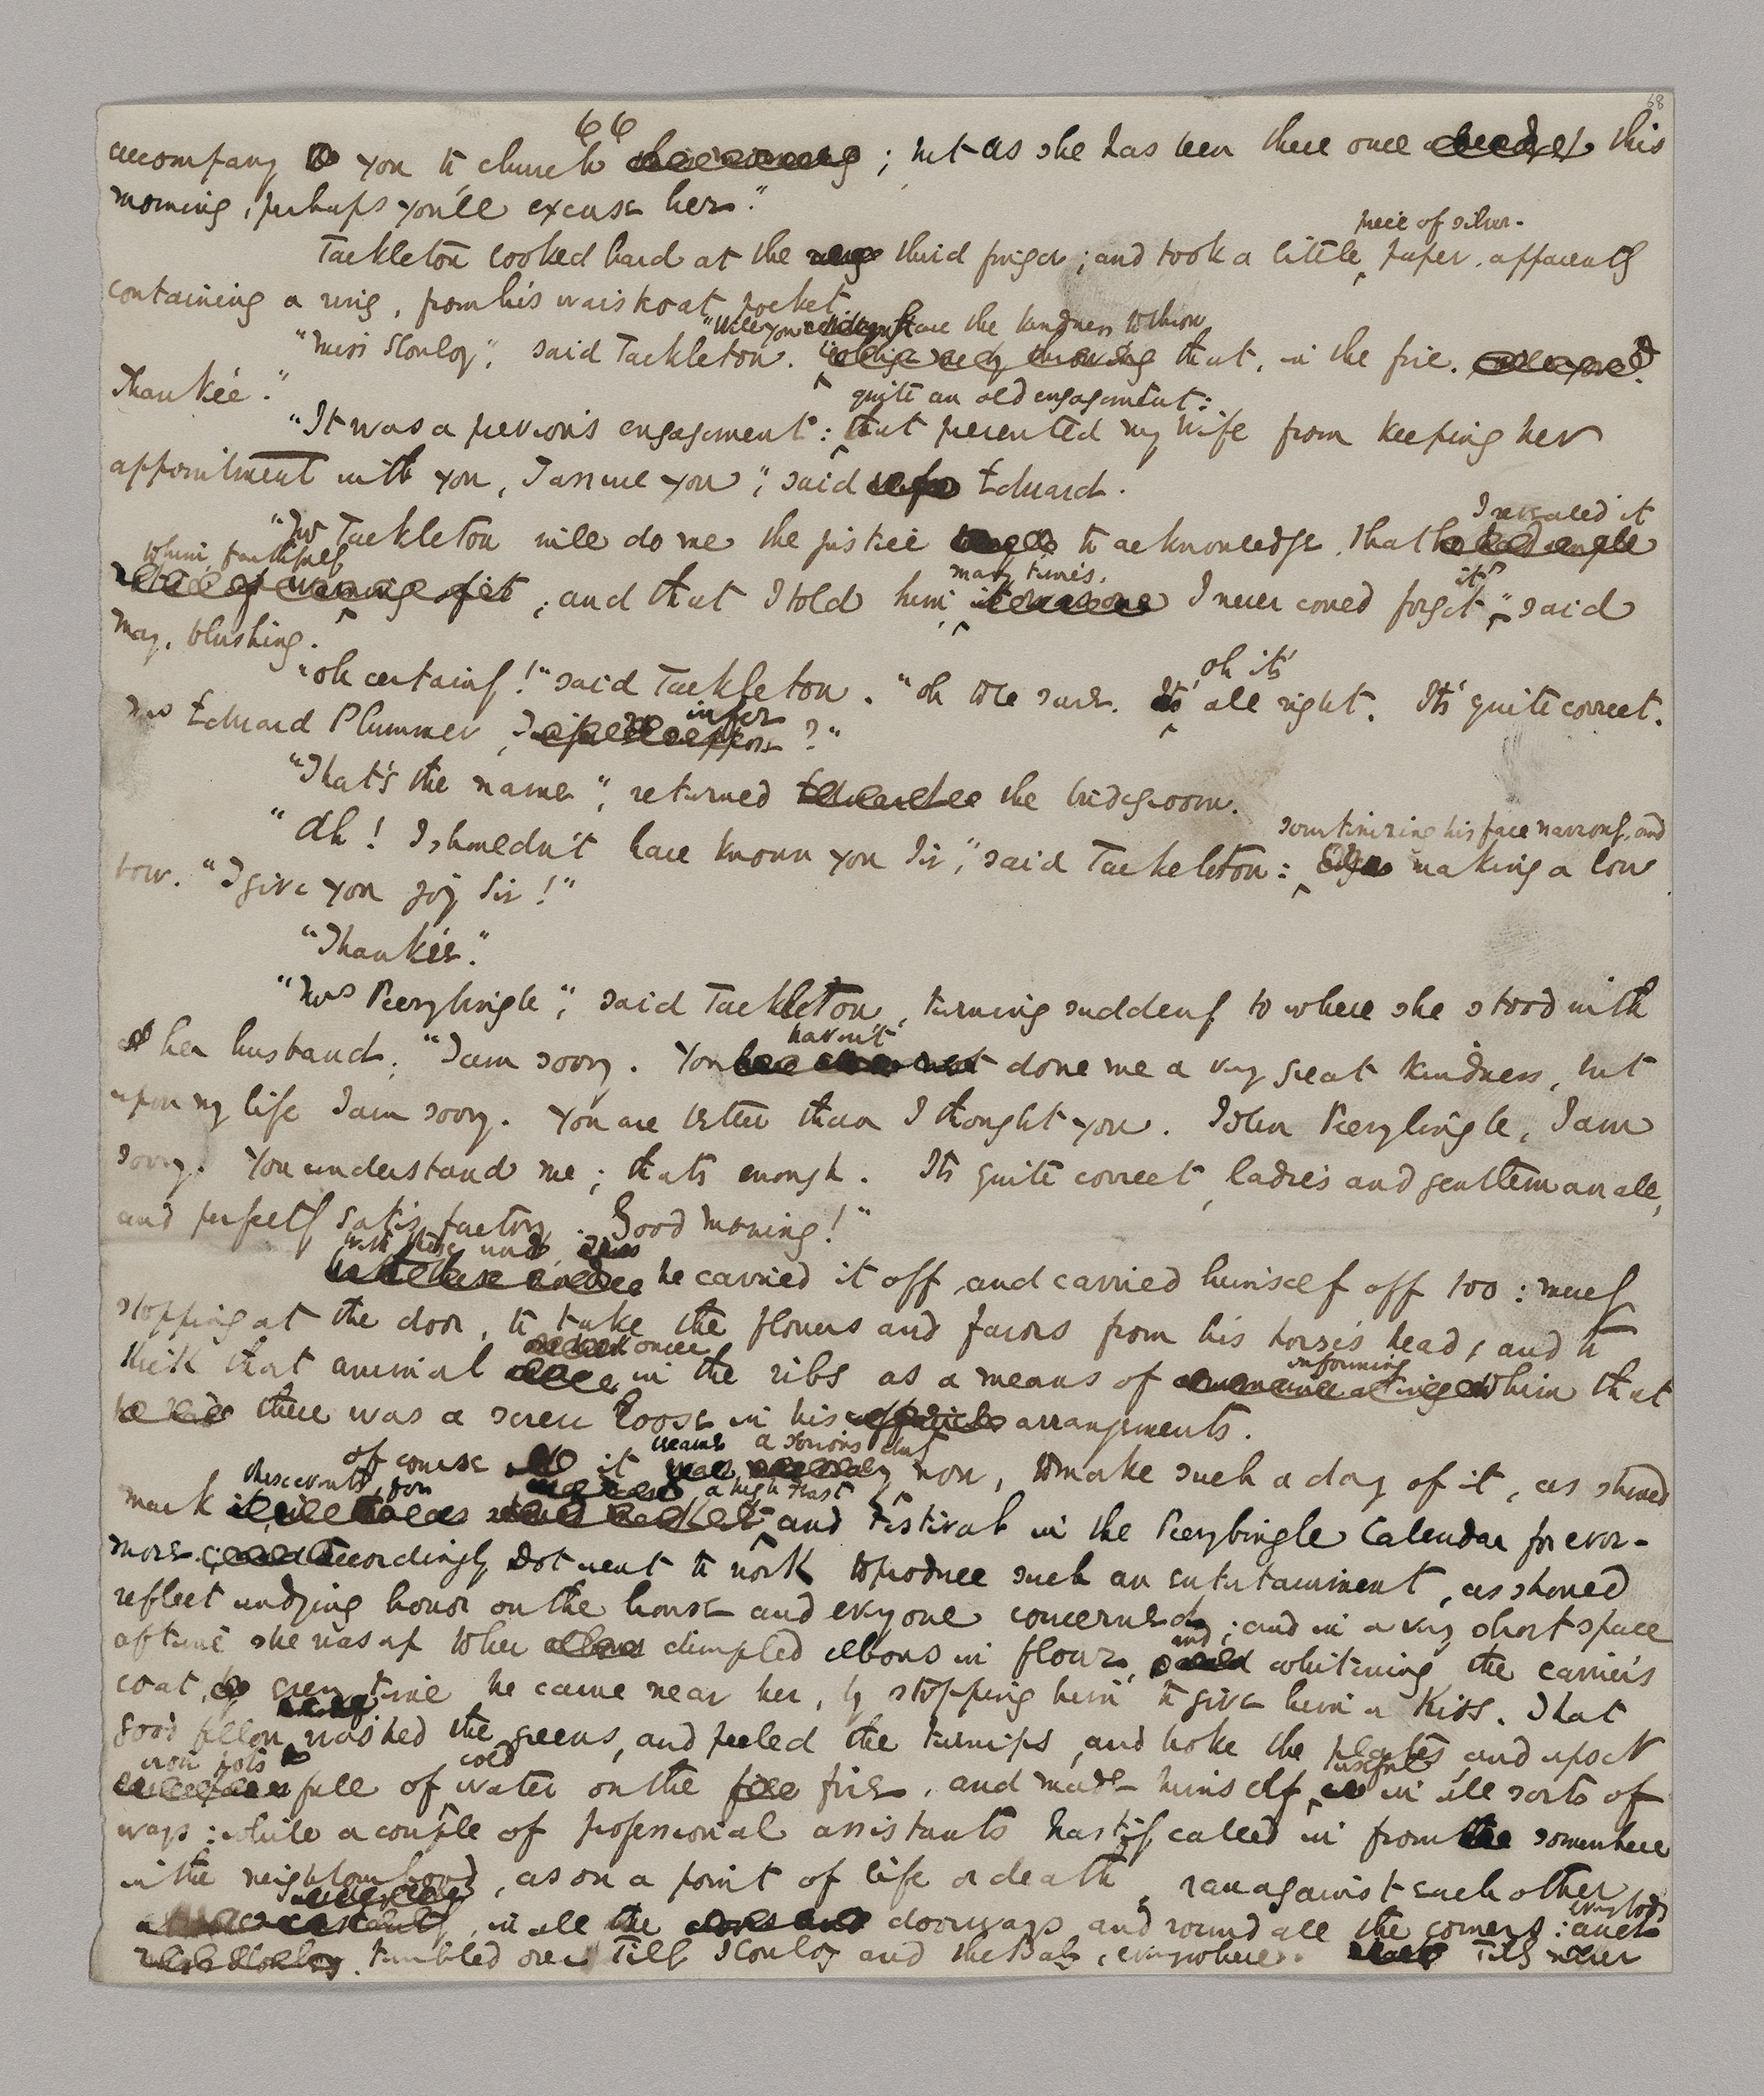 68
66
accompany you to church ; but as she has been there once already this
morning, perhaps you'll excuse her."
piece of silver-
Tackleton looked hard at the third finger ; and took a little paper, apparently
containing a ring, from his waistcoat pocket
"Will you have the kindness to throw
"Miss Slowboy", said Tackleton. that, in the fire.
Thank'ee."
quite an old engagement:
"It was a previous engagement: that prevented my wife from keeping her
appointment with you, I assure you", said Edward.
I revealed it
"Mr Tackleton will do me the justice to acknowledge, that
to him, faithfully
many times,
it"
; and that I told him, I never could forget" said
May, blushing.
oh it's
"oh certainly!" said Tackleton. "oh to be sure. It's all right. It's quite correct.
infer
Mrs Edward Plummer, I ?"
"That's the name", returned the bridegroom.
scrutinizing his face narrowly, and
"Ah! I shouldn't have known you Sir", said Tackleton: making a low
bow. "I give you joy Sir!"
"Thank'ee."
"Mrs Peerybingle", said Tackleton, turning suddenly to where she stood with
haven't
her husband; "I am sorry. You done me a very great kindness, but
upon my life I am sorry. You are better than I thought you. John Peerybingle, I am
sorry. You understand me; that's enough. It's quite correct, ladies and gentleman all,
and perfectly satisfactory. Good morning!"
With these words
he carried it off, and carried himself off too: merely
stopping at the door, to take the flowers and favors from his horse's head, and to
once
informing
kick that animal in the ribs as a means of him that
there was a screw loose in his arrangements.
became a serious duty
of course it now, to make such a day of it, as should
these events, for a high Feast
mark and Festival in the Peerybingle Calendar for ever-
more. Accordingly, Dot went to work to produce such an entertainment, as should
reflect undying honor on the house and every one concerned; and in a very short space
of time she was up to her dimpled elbows in flour, and whitening the carrier's
coat, every time he came near her, by stopping him to give him a kiss. That
good fellow washed the greens, and peeled the turnips, and broke the plates, and upset
iron pots
cold
useful
full of water on the fire, and made himself in all sorts of
ways: while a couple of professional assistants hastily called in from somewhere
in the neighbourhood, as on a point of life or death, ran against each other
everybody
in all the doorways and round all the corners:
tumbled over Tilly Slowboy and the Baby, everywhere. Tilly never